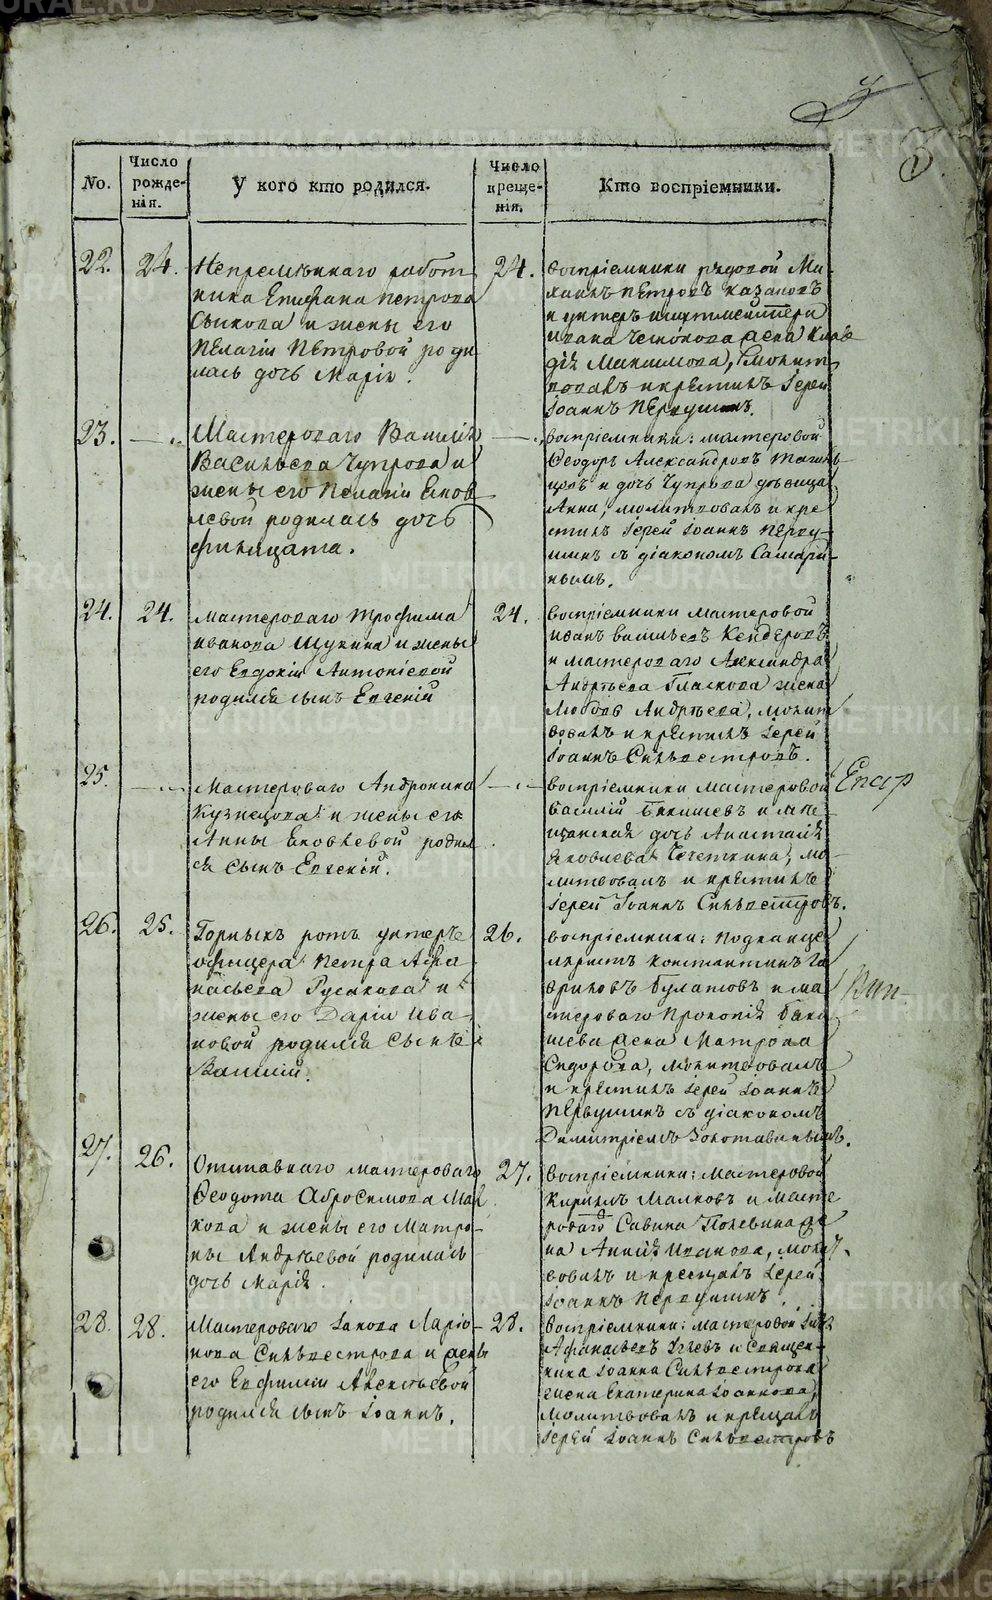 No.
Число рожденія.
У кого кто родился.
Число крещенія.
Кто воспріемники.
22.
24.
Непремѣннаго работ
ника Епифана Петрова
Сычкова и жены его
Пелагіи Петровой роди
лась дочь Марія.
24.
Воспріемники рядовой Ми-
хаилъ Петровъ Казаковъ
и унтеръ шихтмейстера
Ивана жена Клав
дія Максимова, молит
вовалъ и крестилъ Іерей
Іоаннъ Первушинъ.
23.
— „
Мастероваго Василія
Васильева Чупрова и
жены его Пелагіи Яков
левой родилась дочь
Филицата.
— „
Воспріемники: мастеровой
Ѳеодоръ Александровъ
и дочь Чупрова дѣвица
Анна, молитвовалъ и кре
стилъ Іерей Іоаннъ Перву-
шинъ съ діакономъ Самари-
нымъ.
24.
24.
Мастероваго Трофима
Иванова Щукина и жены
его Евдокіи Антоніевой
родился сынъ Евгеній
24.
Воспріемники мастеровой
Иванъ Васильевъ
и мастероваго Александра
Андреева Гласкова жена
Любовь Андреева, молит
вовалъ и крестилъ Іерей
Іоаннъ Сильвестровъ.
25.
— „
Мастероваго Андроника
Кузнецова и жены его
Анны Яковлевой родил
ся сынъ Евгеній.
— „
Воспріемники мастеровой
Василій Бякишевъ и мѣ
щанская дочь Анастасія
Яковлева Чечеткина, мо-
литвовалъ и крестилъ
Іерей Іоаннъ Сильвестровъ.
26.
25.
Горныхъ ротъ унтеръ
офицера Петра Афа
насьева Русакова и
жены его Даріи Ива-
новой родился сынъ
Василій.
26.
Воспріемники: подканце
ляристъ Константинъ Га
вриловъ Булатовъ и ма
стероваго Прокопія Баки
шева жена Матрона
Сидорова, молитвовалъ
и крестилъ Іерей Іоаннъ
Первушинъ съ діакономъ
Димитріемъ Золотавинымъ.
27.
26.
Отставнаго мастероваго
Ѳеодота Абросимова Мал
кова и жены его Матро-
ны Андреевой родилась
дочь Марія.
27.
Воспріемники: мастеровой
Кирилъ Малковъ и масте
роваго Савина Полевина же
на Аннія Иванова, моли
вовалъ и крещалъ Іерей
Іоаннъ Первушинъ
28.
28.
Мастероваго Іакова Ларіо-
нова Сильвестрова и жены
его Евфиміи Алексѣевой
родился сынъ Іоаннъ.
28.
Воспріемники: мастеровой
Афанасьевъ и Священ-
ника Іоанна Сильвестрова
жена Екатерина Іоаннова,
молитвовалъ и крещалъ
Іерей Іоаннъ Сильвестровъ
METRIKI.GASO-URAL.RU